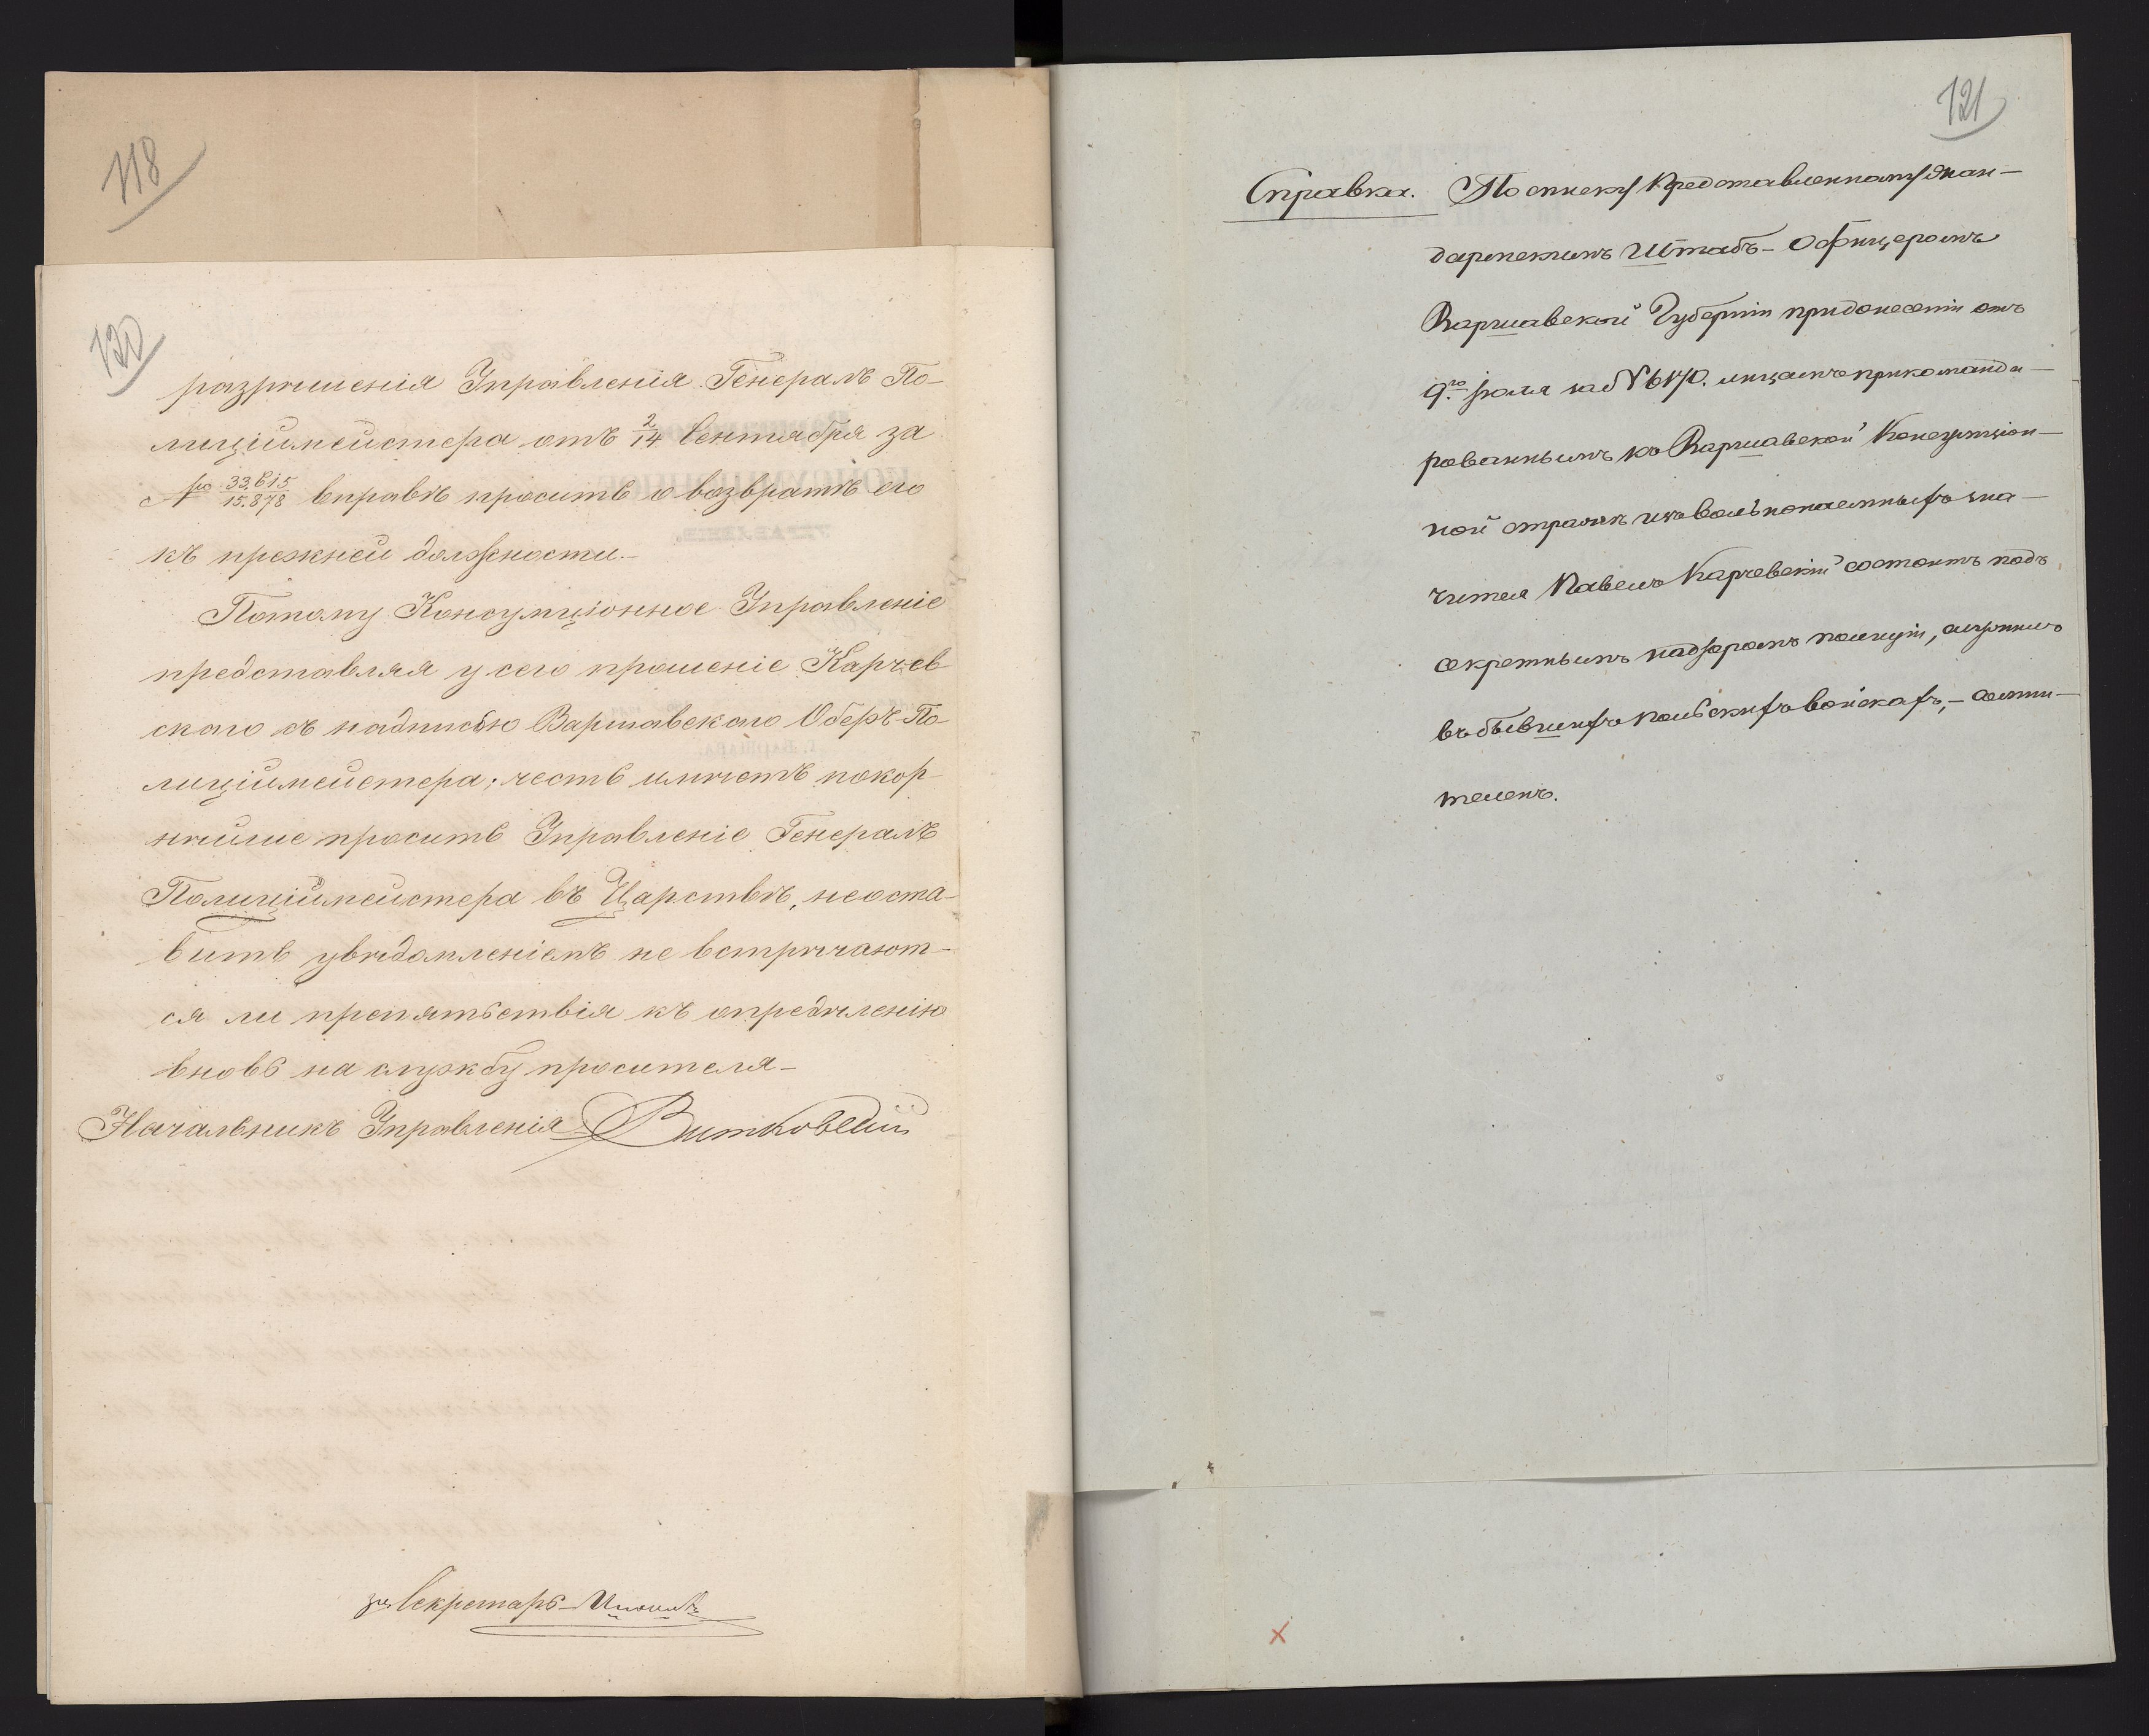 118
120
разрѣшенія Управленія Генералъ По-
лиціймейстера отъ 2/14 Сентября за
№ 33.615/15.878 вправѣ просить о возвратѣ его
къ прежней должности.-
Потому Консумціонное Управленіе
представляя у сего прошеніе Карчев
скаго съ надписью Варшавскаго Оберъ-По-
лиціймейстера; честь имѣетъ покор
нѣйше просить Управленіе Генералъ
Полиціймейстера въ Царствѣ, неоста-
вить увѣдомленіемъ не встрѣчают-
ся ли препятствія къ опредѣленію
вновь на службу просителя-
Начальникъ Управленія Витковскій
за Секретарь
121
Справка. По списку представленному жан-
дармскимъ Штабъ-Офицеромъ
Варшавской Губерніи при донесеніи отъ
9го Іюля за № 6170. лицамъ прикоманди-
рованнымъ къ Варшавской Консумціон-
ной стражѣ изъ вольнонаемныхъ зна-
чится Павелъ Карчевскій состоитъ подъ
секретнымъ надзоромъ полиціи, служилъ
въ бывшихъ польскихъ войскахъ,-